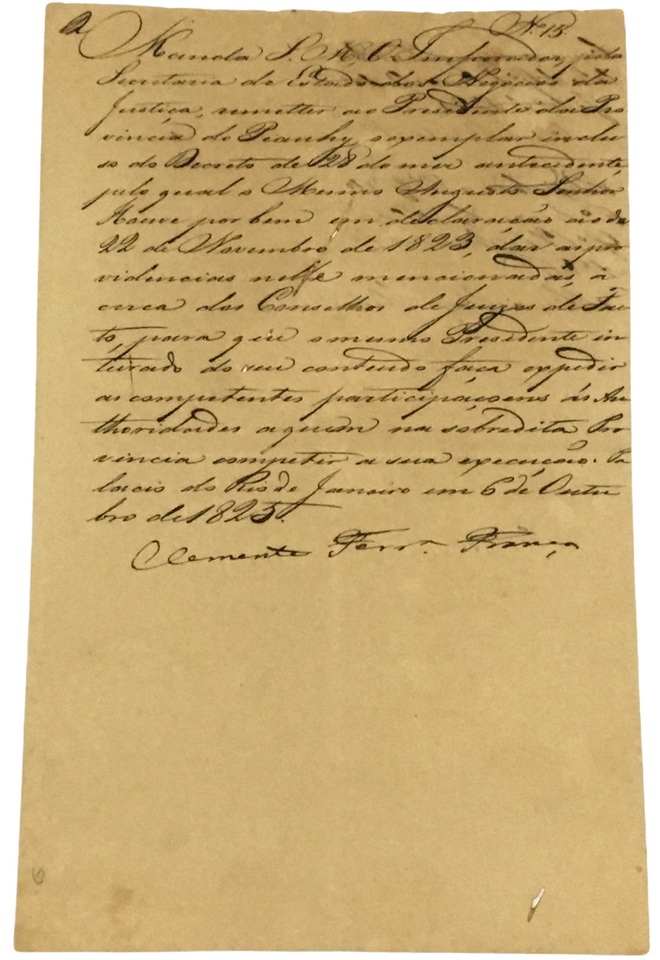 a Nº 15
Manda S. M. O Imperador, pela
Secretaria de Estado dos Negocios da
Justiça, remetter ao Presidente da Pro
vincia do Piauhy o exemplar inclu
so do Decreto de 28 do mez antecedente,
pelo qual o Mesmo Augusto Senhor
Houve por bem em declaração ao de
22 de Novembro de 1823, dar as pro
videncias nelle mencionadas, á
cerca dos Conselhos de Juizes de Fac
to, para que o mesmo Presidente in
teirado do seu contendo faça expedir
as competentes participaçoens ás Au
thoridades a quem na sobredita Pro
vincia competir a sua execução. Pa
lacio do Rio de Janeiro em 6 de Outu
bro de 1825.
Clemente Ferr.ª França
6